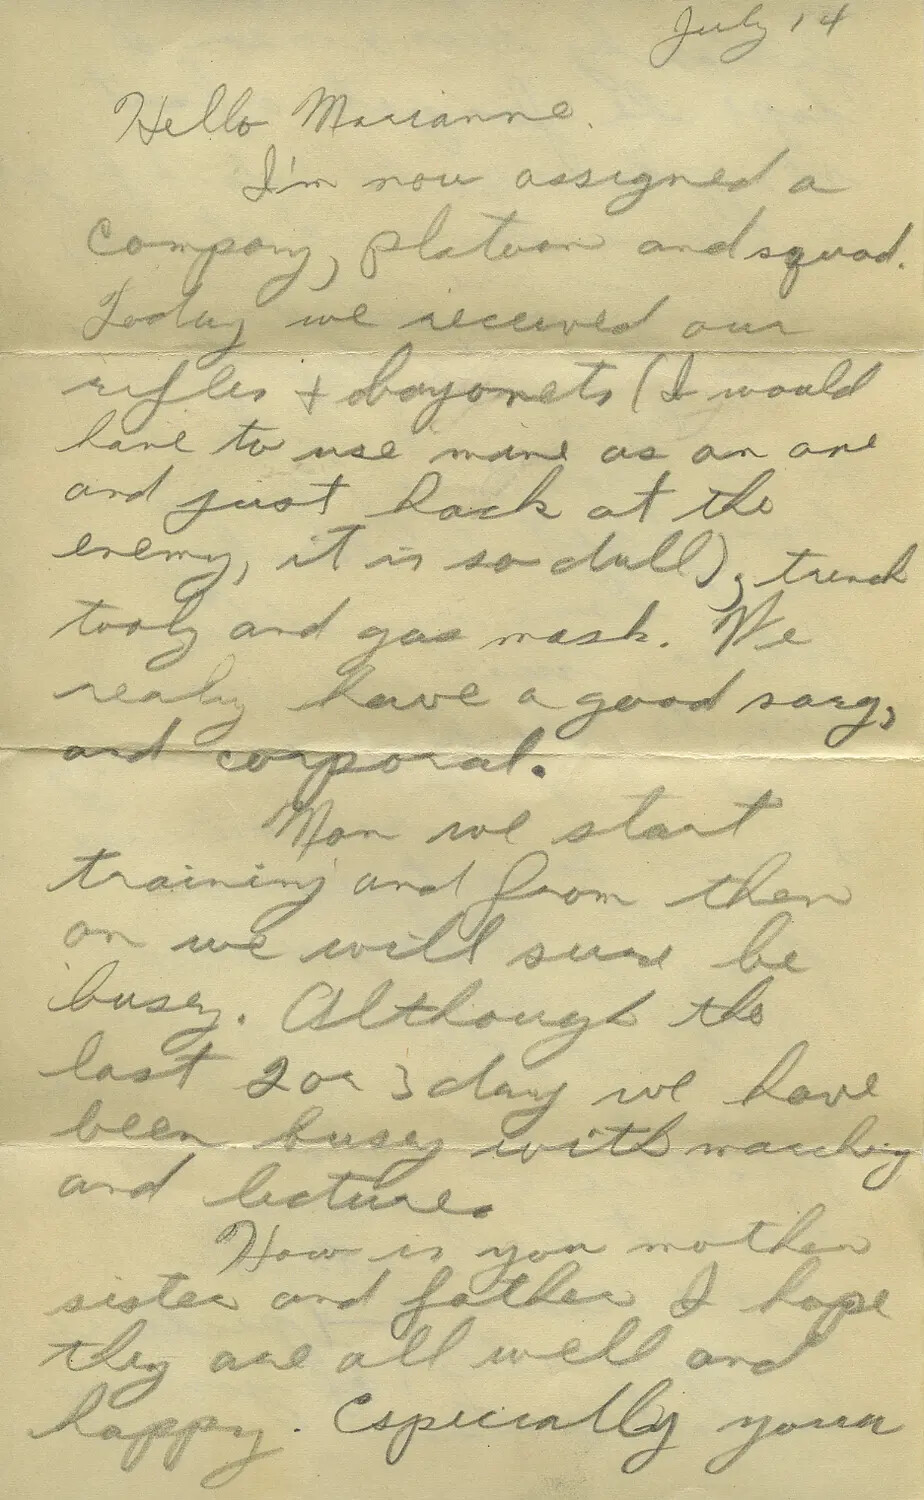 July 14
Hello Marianne.
I'm now assigned a
company, platoon and squad.
Today we received our
rifles + bayonets (I would
have to use mine as an axe
and just hack at the
enemy, it is so dull), trench
tools and gas mask. We
really have a good sarg,
and corporal.
Mon we start
training and from then
on we will sure be
busey. Although the
last 2 or 3 days we have
been busey with marching
and lectures.
How is you mother
sister and father I hope
they are all well and
happy. Especially your